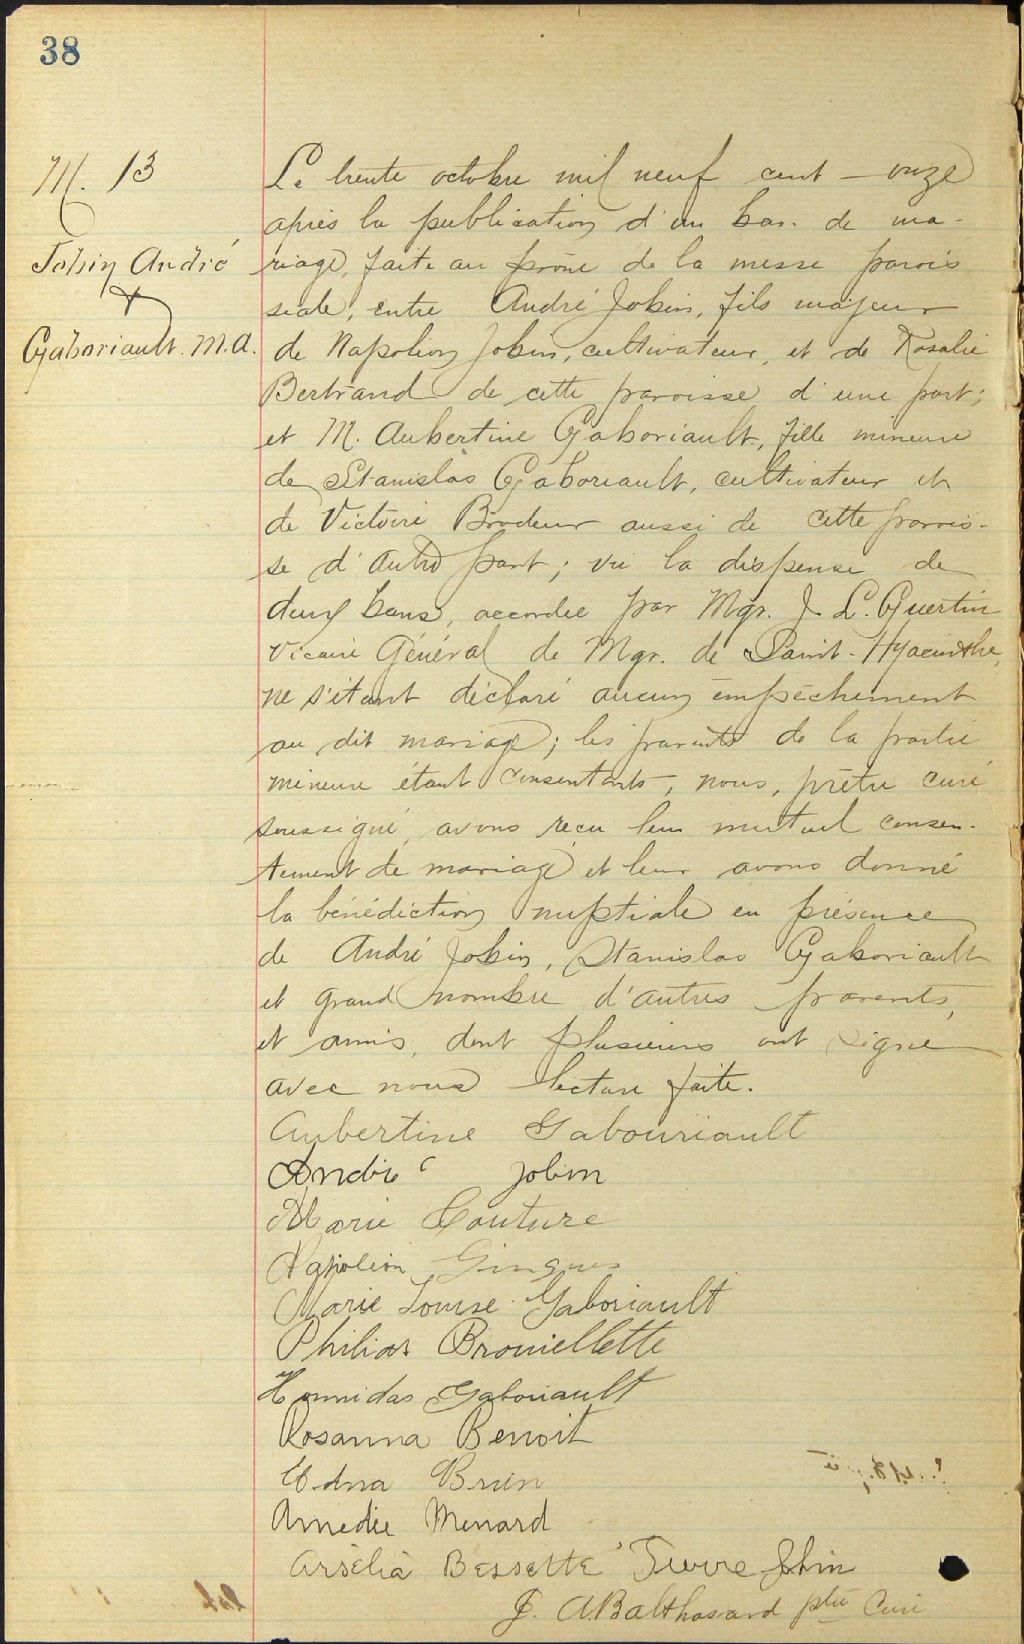 38
M. 13
Jobin André
&
Gaboriault. M.A.
Le trente octobre mil neuf cent – onze
après la publication d'un ban de ma-
riage, faite au prône de la messe parois
siale, entre André Jobin, fils majeur
de Napoléon Jobin, cultivateur, et de Rosalie
Bertrand de cette paroisse d'une part;
et M. Aubertine Gaboriault, fille mineure
de Stanislas Gaboriault, cultivateur et
de Victoire Brodeur aussi de cette parois-
se d'autre part; vu la dispense de
deux bans, accordée par Mgr. J. L. Guertin
Vicaire Général de Mgr. de Saint-Hyacinthe,
ne s'étant déclaré aucun empêchement
au dit mariage; les parents de la partie
mineure étant consentants, nous, prêtre curé
soussigné, avons reçu leur mutuel consen-
tement de mariage et leur avons donné
la bénédiction nuptiale en présence
de André Jobin, Stanislas Gaboriault
et grand nombre d'autres parents,
et amis, dont plusieurs ont signé
avec nous lecture faite.
Aubertine Gabouriault
André Jobin
Marie Couture
Napoléon Gingues
Marie Louise Gaboriault
Philias Brouiellette
Hormidas Gaboriault
Rosanna Benoit
Edna Brien
Amédée Menard
Arsélia Bessette Pierre Jobin
J. A. Balthasard ptre Curé